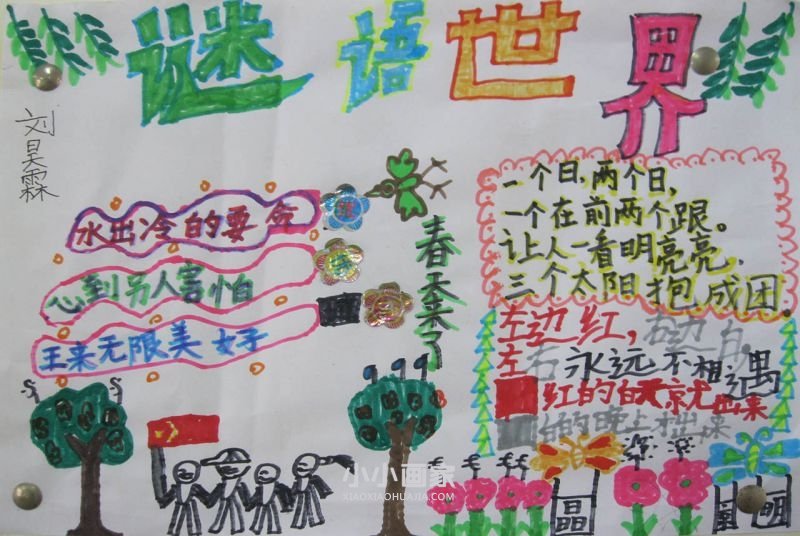 谜语世界
刘昊霖
水出冷的要命
心到另人害怕
王来无限美女子
春天来了
一个日,两个日,
一个在前两个跟。
让人一看明亮亮,
三个太阳抱成团。
左边红,右边白,
左右永远不相遇
红的白天就出来
白的晚上才出来
晶
明
小小画家
XIAOXIAOHUAJIA.COM